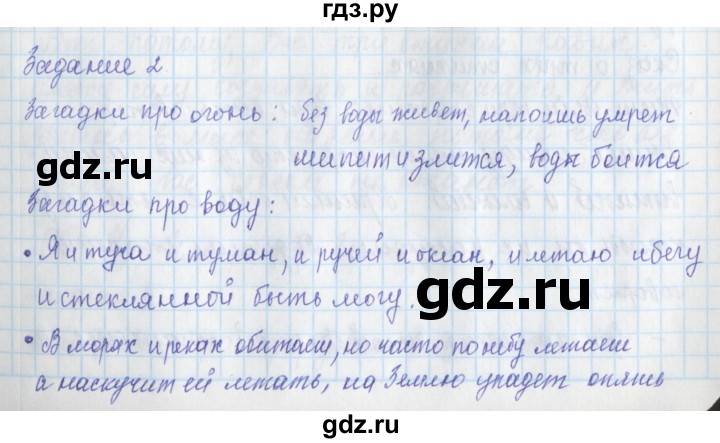 гдз.ру
Задание 2
Загадки про огонь: без воды живет, напоишь умрет
шипит и злится, воды боится
gdz.ru
Загадки про воду:
• Я и туча и туман, и ручей и океан, и летаю и бегу
и стеклянной быть могу.
gdz.ru
• В морях и реках обитает, но часто по небу летает
а наскучит ей летать, на Землю упадет опять
gdz.ru